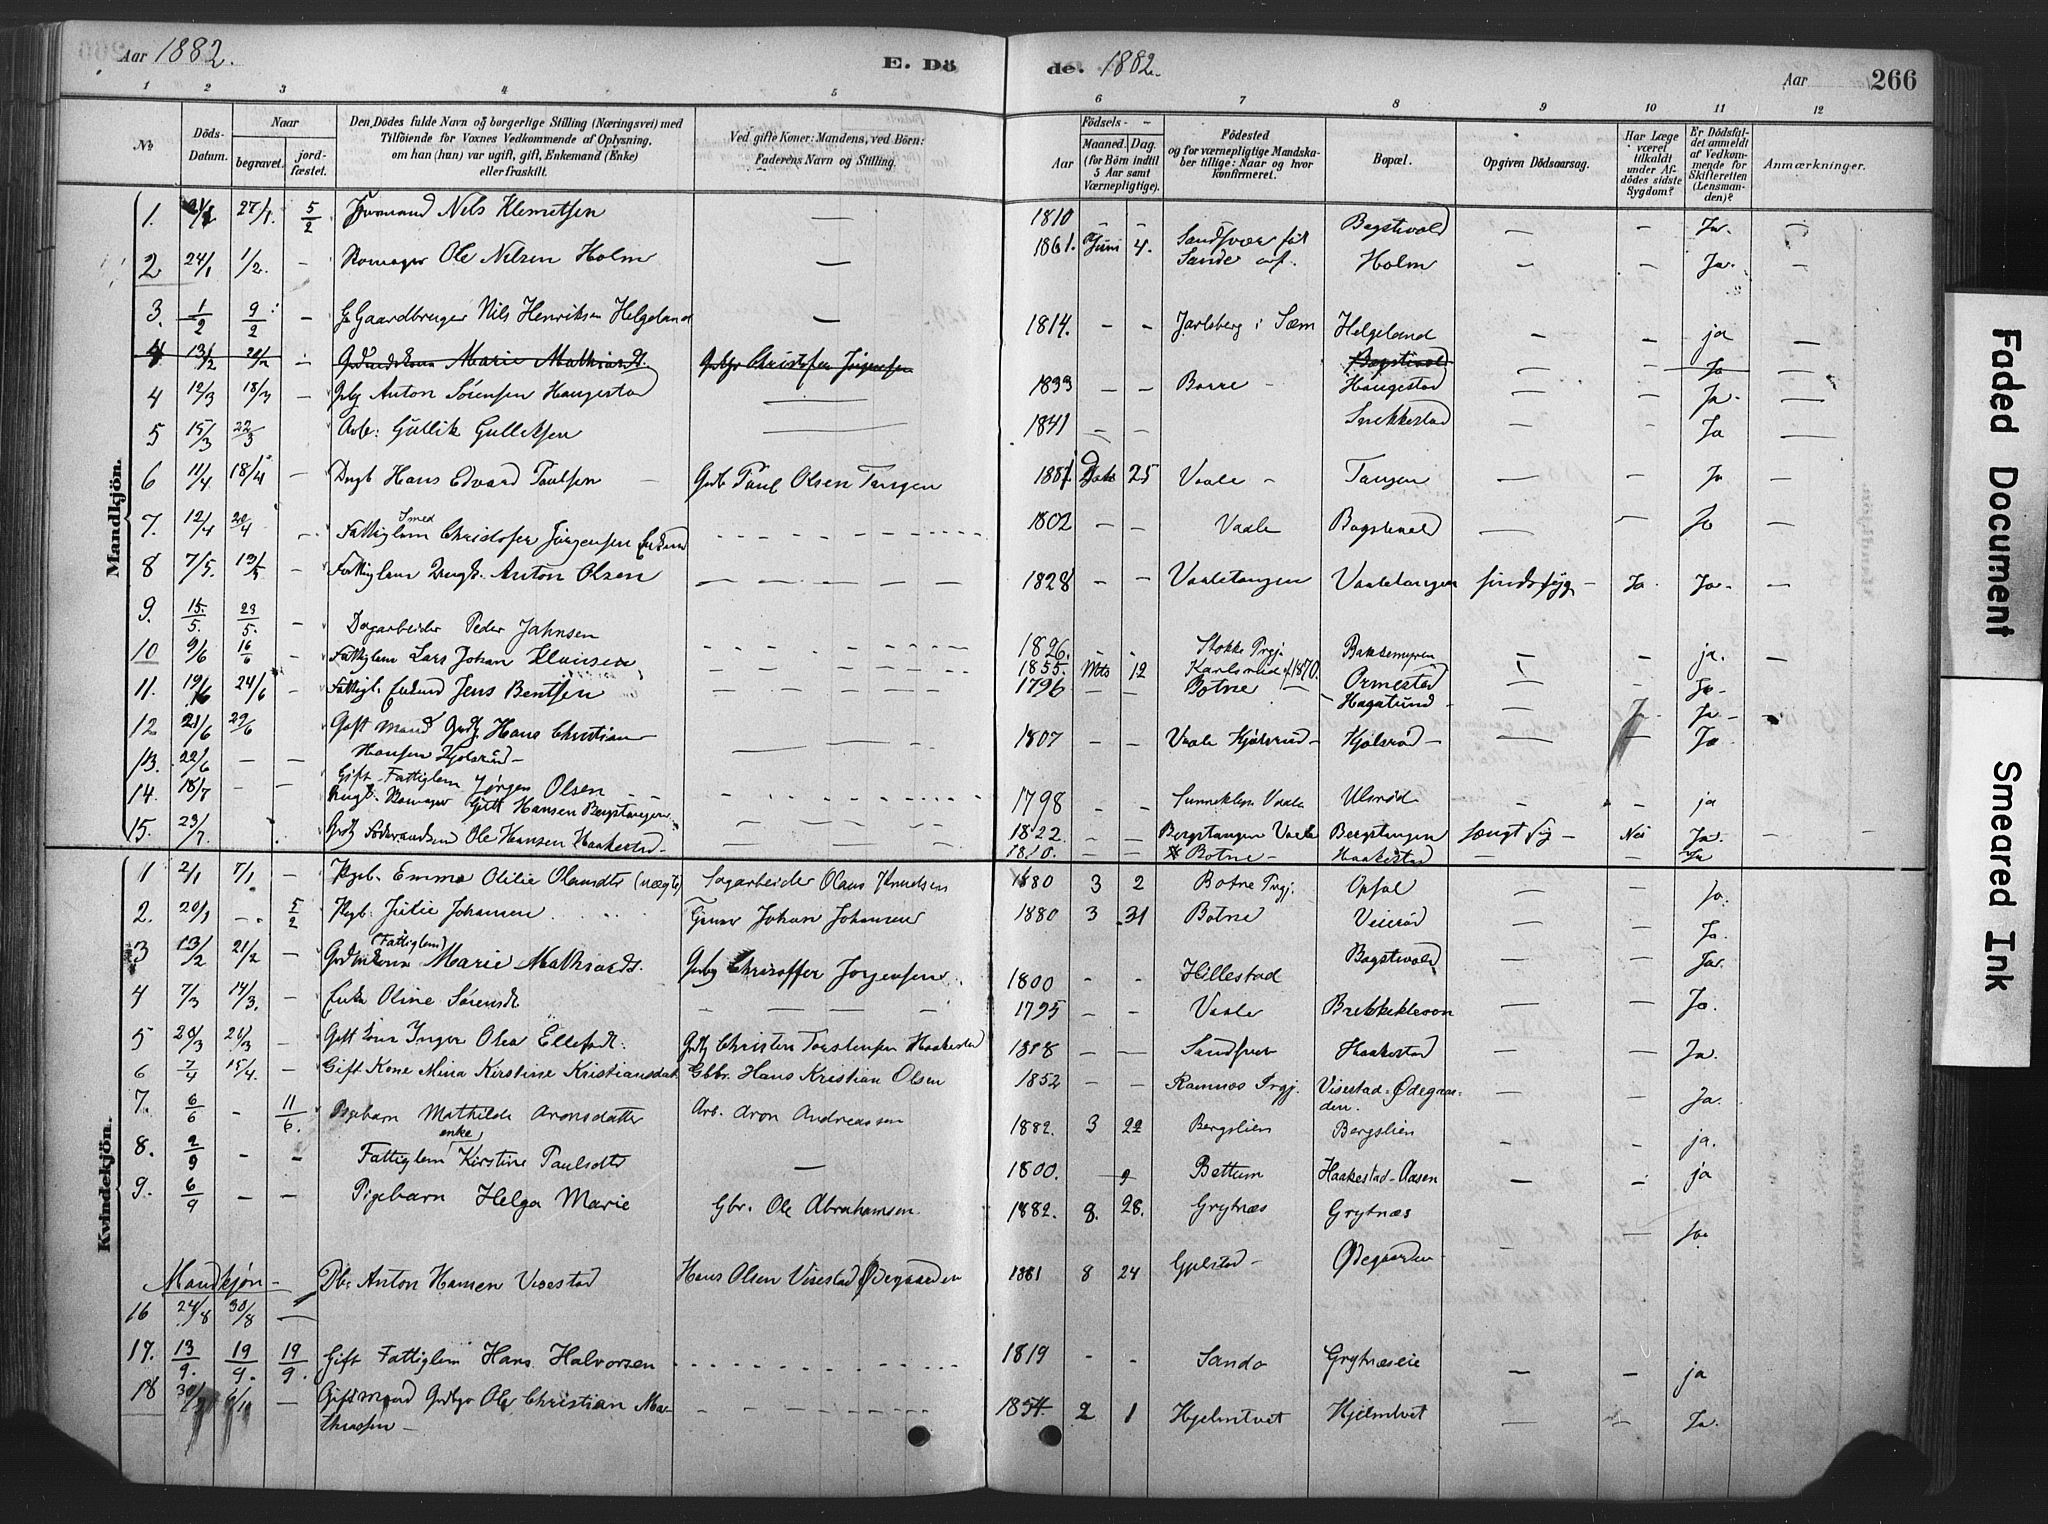 Aar 1882.
E. Dö
de. 1882.
Aar
266
1 2 3 4 5 6 7 8 9 10 11 12
No
Döds-Datum.
Naar
begravet.
jord-fæstet.
Den Dödes fulde Navn og borgerlige Stilling (Næringsvei) med
Tilföiende for Voxnes Vedkommende af Oplysning,
om han (hun) var ugift, gift, Enkemand (Enke)
eller fraskilt.
Ved gifte Koner: Mandens, ved Börn:
Faderens Navn og Stilling.
Födsels-
Aar
Maaned. Dag.
(for Börn indtil
5 Aar samt
Værnepligtige).
Födested
og for værnepligtige Mandska-
ber tillige: Naar og hvor
konfirmeret.
Bopæl.
Opgiven Dödsaarsag.
Har Læge
været
tilkaldt
under Af-
dödes sidste
Sygdom?
Er Dödsfal-
det anmeldt
af Vedkom-
mende for
Skifteretten
(Lensman-
den)?
Anmærkninger.
Mandkjön.
1. 27/1 5/2 Nels Klemetsen — 1810 - - Bagstevold — — Ja —
2 24/1 1/2 - Ole Nelsen Holm — 1861. Juni 4. Sandsvær föt Sande Holm — — Ja. —
3. 1/2 9/2 — Gaardbruger Nils Henriksen Helgeland — 1814. - - Jarlsberg i Sæm Helgeland — — ja —
4 13/2 20/2 - Marie Mathiasdt. Christofer Jörgensen Bagstevold — — Ja —
4 12/3 18/3 — Gbg Anton Sörensen Haugestad — 1833 - - Borre - Haugestad — — Ja. —
5 15/3 22/3 Arb: Gullik Gulliksen — 1841 — - Snekkestad — — Ja —
6 11/4 18/4 — Drgb Hans Edvard Paulsen - Grdb Paul Olsen Tangen 1881 25 Vaale - Tangen — - Ja —
7. 12/4 20/4 - Fattiglem Smed Christofer Jörgensen Enkemd 1802 - - Vaale Bagstevold — - Jo —
8 7/5. 13/5 - Fattiglem Anton Olsen — — 1828 - - Vaaletangen Vaaletangen sindssyg - Ja. Ja. —
9. 15./5. 23/5. — Dagarbeider Peder Jahnsen 1826. - - Stokke Prgj. Bakkemyren — - ja. —
10 9/6 16/6 Fattiglem Lars Johan 1855. Mts 12 1870. Ormestad — -
11. 19/6 24/6 — Fattigl. Enkmd Jens Bentsen 1796 — - Botne — Hagatund - — Ja —
12 21/6 29/6 Gift Mand Hans Christian
Hansen Kjolsrud - 1807 - - Vaale Kjölsrud - Kjölsröd - — Ja
13. 22/6 — — Gift Fattiglem Jørgen Olsen 1798 - - Vaale Ulsröd - - ja
14. 18/7 - - Hansen Bergstangen 1822. - - Bergstangen Vaale Bergstangen - Nei Ja. -
15. 23/7. Ole Hansen Haakestad - 1810. - - Botne - Haakestad - - Ja
Kvindekjön.
1 2/1 7/1 — Pgeb. Emma Otilie Olausdts (uægte) Dagarbeider Olaus Knudsen 1880 3 2 Botne Prgj. Opsal — - Ja.
2. 20/1 -. 5/2 Pigeb: Julie Johansen Johan Johansen 1880 3 31 Botne Veieröd — - Ja.
3 13/2 21/2 — (Fattiglem) Marie Mathiasdt. Gbg Christoffer Jorgensen 1800 - - Hillestad Bagstevold — - Ja.
4 7/3 14/3. — Enke Oline Sörensdt — 1795 - - Vaale Brekkekleven — — Jo.
5 20/3 28/3 — Gift Kone Inger Olea Ellefsdt: Christen Torstensen Haakestad 1818 — — Sandsvær Haakestad — — Ja.
6 7/4 15/4. — Gift Kone Mina Kirstine Kristiansdat. Gbbr. Hans Kristian Olsen 1852 - - Ramnæs Prgj. Visestad-Ødegaar-
den. — - Ja.
7. 6/6 - 11/6. Pigebarn Mathilde Aronsdatter Arb. Aron Andreassen 1882. 3 22 Bergslien Bergslien - - ja.
8. 2/9 - - Fattiglem enke Kirstine Paulsdts — 1800. - 9 Bettum Haakestad-Aasen — - ja
9. 6/9 - — Pigebarn Helga Marie Gbr. Ole Abrahamsen 1882. 8. 28. Grytnæs Grytnæs Ja.
Mandkjøn -
16 24/8 30/8 — Db: Anton Hansen Visestad Hans Olsen Visestad Ødegaarden 1881 8 24 Gjelstad - Ødegaarden
17. 13/9. 19/9. 19/9. Gift Fattiglem Hans Halvorsen 1819 - - Sande Grytnæseie — - ja
18 30/9 6/10 — Gift Mand Ole Christian Ma-
thiassen - 1854. 2 1 Hjelmtvet Hjelmtvet — - Ja.
Faded Document
Smeared Ink